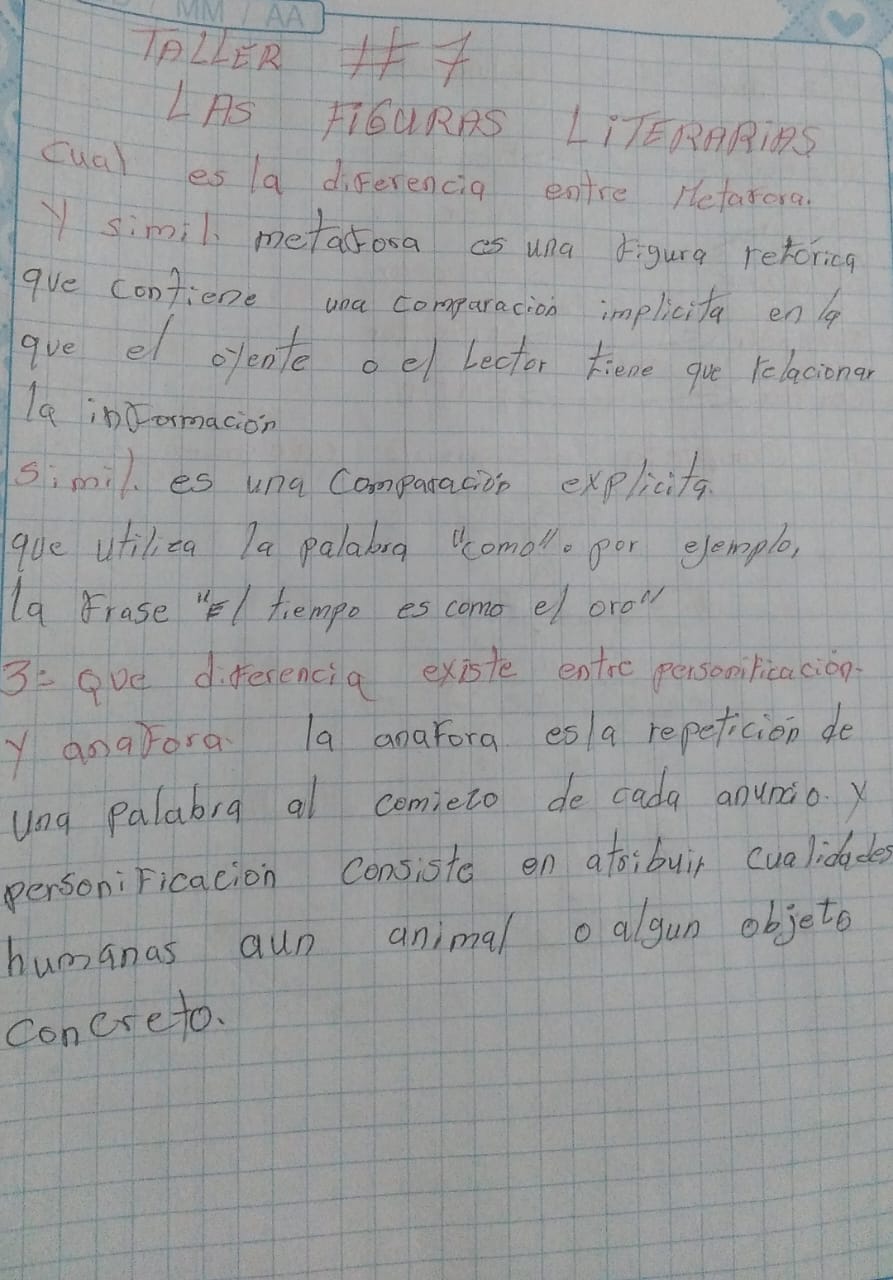 MM / AA
TALLER #7
LAS FiGURAS LiTERARiAS
cual es la diferencia entre Metafora.
Y simil. metafora es una figura retórica
que contiene una comparación implicita en la
que el oyente o el Lector tiene que relacionar
la información
simil. es una Comparación explicita.
que utiliza la palabra "como". por ejemplo,
la Frase "El tiempo es como el oro"
3= Que diferencia existe entre personificación.
y anafora. la anafora es la repetición de
Una palabra al comiezo de cada anuncio. y
personiFicación Consiste en atribuir cualidades
humanas aun animal o algun objeto
Concreto.